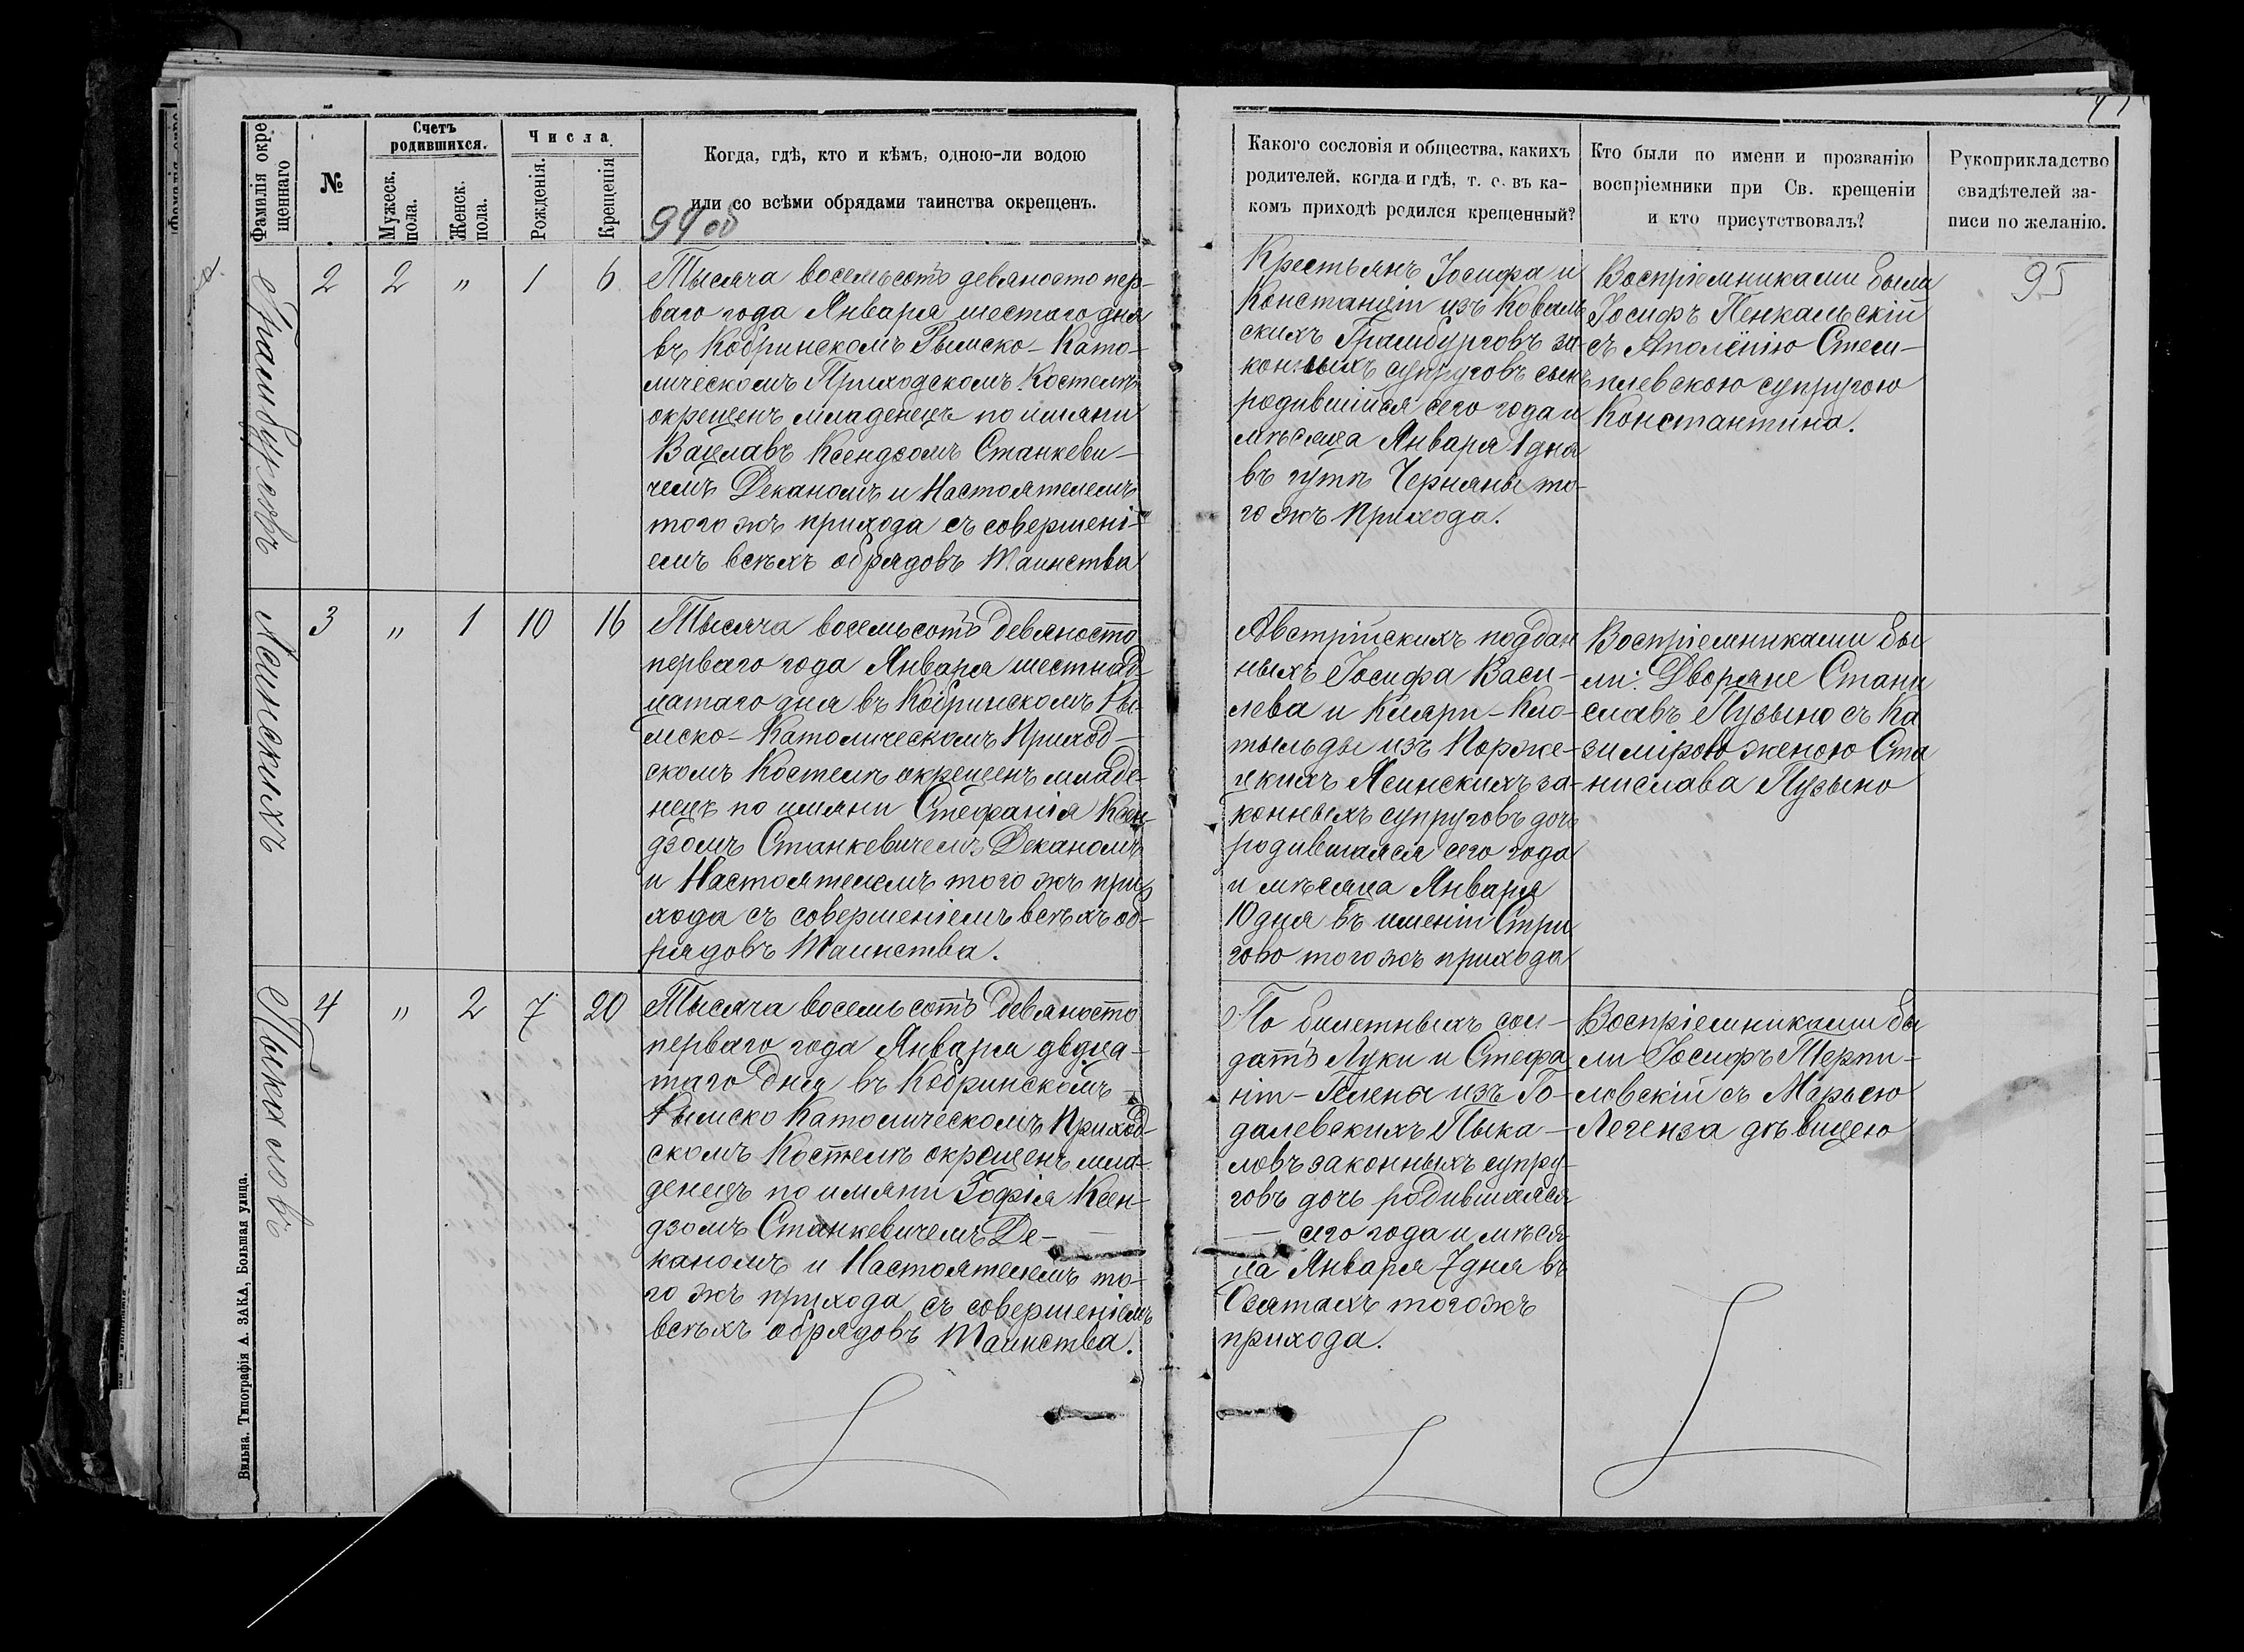 Фамилія окре
щеннаго
№
Счетъ
родившихся.
Мужеск.
пола.
Женск.
пола.
Числа.
Рожденія.
Крещенія
Когда, гдѣ, кто и кѣмъ, одною-ли водою
или со всѣми обрядами таинства окрещенъ.
94об
Какого сословія и общества, какихъ
родителей, когда и гдѣ, т. е. въ ка-
комъ приходѣ родился крещенный?
Кто были по имени и прозванію
воспріемники при Св. крещеніи
и кто присутствовалъ?
Рукоприкладство
свидѣтелей за-
писи по желанію.
95
Грамбурговъ
2 2 " 1 6
Тысяча восемьсотъ девяносто пер-
ваго года Января шестаго дня
въ Кобринскомъ Римско-Като-
лическомъ Приходскомъ Костелѣ
окрещенъ младенецъ по имяни
Вацлавъ Ксендзомъ Станкеви-
чемъ Деканомъ и Настоятелемъ
того жъ прихода съ совершені-
емъ всѣхъ обрядовъ Таинства
Крестьянъ Іосифа и
Констанціи изъ Коваль
скихъ Грамбурговъ за-
конныхъ супруговъ сынъ
родившійся сего года и
мѣсяца Января 1 дня
въ гутѣ Черняны то-
го жъ прихода.
Воспріемниками были
Іосифъ Пенкальскій
съ Аполёнію Стем-
плевскою супругою
Константина.
Ясинскихъ
3 " 1 10 16
Тысяча восемьсотъ девяносто
перваго года Января шестнад-
цатаго дня въ Кобринскомъ Ри-
мско-Католическомъ Приход-
скомъ Костелѣ окрещенъ младе-
нецъ по имяни Стефанія Ксен-
дзомъ Станкевичемъ Деканомъ
и Настоятелемъ того жъ при
хода съ совершеніемъ всѣхъ об-
рядовъ Таинства.
Австрійскихъ поддан
ныхъ Іосифа Васи-
лева и Кляри-Кло-
тыльды изъ Корже-
цкихъ Ясинскихъ за-
конныхъ супруговъ дочь
родившаяся сего года
и мѣсяца Января
10 дня въ имѣніи Стри
гово того жъ прихода
Воспріемниками бы
ли: Дворяне Стани
славъ Пузыно съ Ка
зимірою женою Ста
нислава Пузыно
Пыкаловъ
4 " 2 7 20
Тысяча восемьсотъ девяносто
перваго года Января двдца-
таго дня въ Кобринскомъ-
Римско Католическомъ Приход-
скомъ Костелѣ окрещенъ мла-
денецъ по имяни Зофія Ксен-
дзомъ Станкевичемъ Де-
каномъ и Настоятелемъ то-
го жъ прихода съ совершеніемъ
всѣхъ обрядовъ Таинства.
По билетныхъ сол-
датъ Луки и Стефа
ніи-Гелены изъ Го-
далевскихъ Пыка-
ловъ законныхъ супру-
говъ дочь родившаяся
сего года и мѣся-
ца Января 7 дня въ
Осятахъ того жъ
прихода.
Воспріемниками бы
ли Іосифъ Терпи-
ловскій съ Марьею
Легенза дѣвицею
Вильна. Типографія А. ЗАКА, Большая улица.